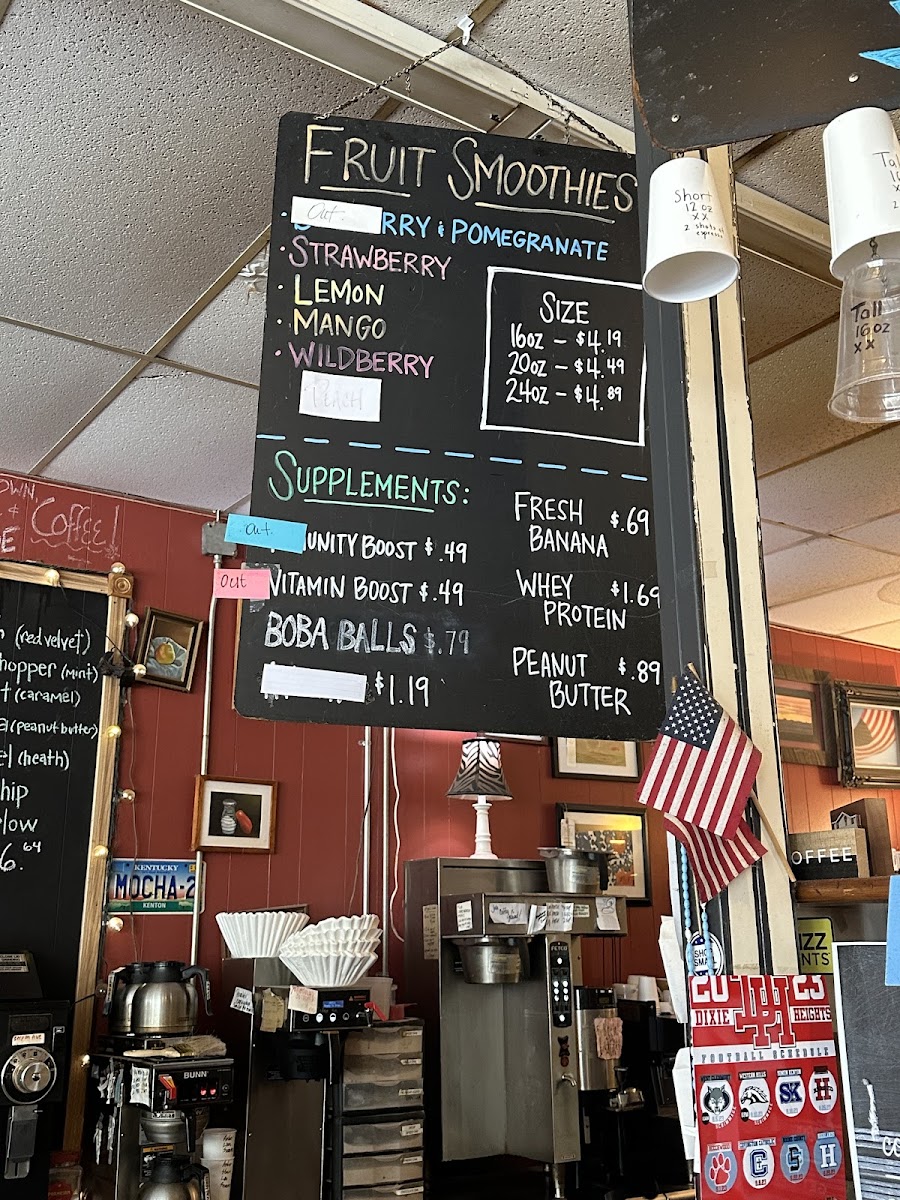 FRUIT SMOOTHIES
Out
RRY & POMEGRANATE
• STRAWBERRY
• LEMON
• MANGO
• WILDBERRY
Peach
SIZE
16oz - $4.19
20oz - $4.49
24oz - $4.89
SUPPLEMENTS:
Out
UNITY BOOST $.49
Out
VITAMIN BOOST $.49
BOBA BALLS $.79
$1.19
FRESH BANANA $.69
WHEY PROTEIN $1.69
PEANUT BUTTER $.89
Short
12 oz
x x
2 shots of
espresso
Tall
16oz
x x
OWN,
&
Coffee!
(red velvet)
hopper (mint)
t (caramel)
a (peanut butter)
el (heath)
hip
low
6.64
KENTUCKY
MOCHA-2
KENTON
BUNN
FETCO
OFFEE
SHOP
SMALL
IZZ
NTS
2023
DIXIE HEIGHTS
FOOTBALL SCHEDULE
SK
H
C
H